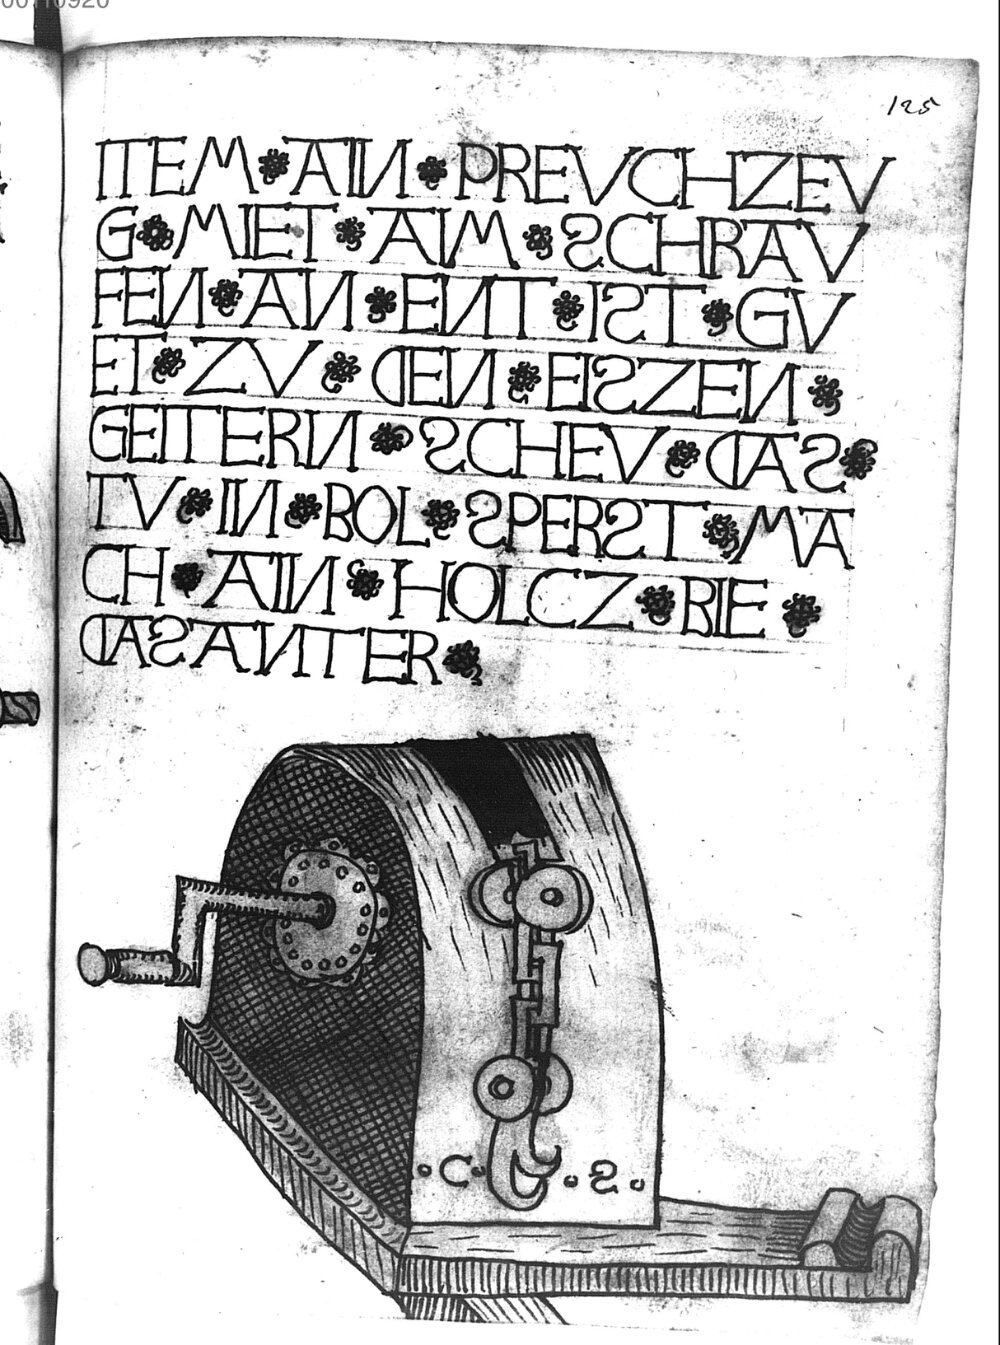 125
ITEM · AIN · PREVCHZEV
G · MIET · AIM · SCHRAV
FEN · AN · ENT · IST · GV
ET · ZV · DEN · EISZEN ·
GEITERN · SCHEV · DAS ·
TV · IN · BOL · SPERST · MA
CH · AIN · HOLCZ · BIE ·
DASANTER ·
· C · · S ·